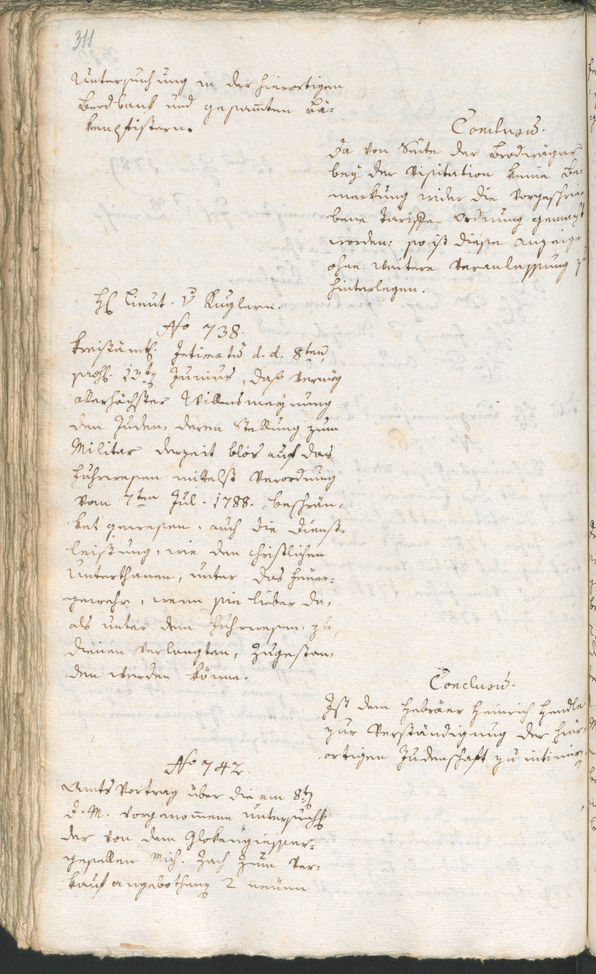 311
Untersuchung in der hierortigen
Brodbank und gesam̅ten Bä-
kenpfistern.
Conclusũ.
Da von Seite der Brodwäger
bey der Visitation keine Be-
merkung wider die vorgeschrie-
bene Tariffs Ordnung gemacht
worden: so ist diese Anzeige
ohne weitere Veranlassung zu
hinterlegen.
H Lieut. v Kuglern.
No 738.
Kreisämtl. Intimatũ d. d. 8ten
praes. 13ten Junius, daß vermög
allerhöchster Willensmeynung
den Juden, deren Stellung zum
Militar derzeit blos auf das
Fuhrwesen mittelst Verordnung
vom 7ten Jul. 1788. beschrän-
ket gewesen, auch die Dienst-
leistung, wie den christlichen
Unterthanen, unter das Feuer-
gewehr, wenn sie lieber da,
als unter dem Fuhrwesen zu
dienen verlangten, zugestan-
den werden könne.
Conclusũ.
Ist dem Hebräer Heinrich Hendle
zur Verständigung der hier-
ortigen Judenschaft zu intimiren
No 742.
Amts Vortrag über die am 8ten
d. M. vorgenom̅ene Untersuchg
der von dem Glokengiesser-
gesellen Mich. Zach zum Ver-
kauf angebothenen 2 neuen